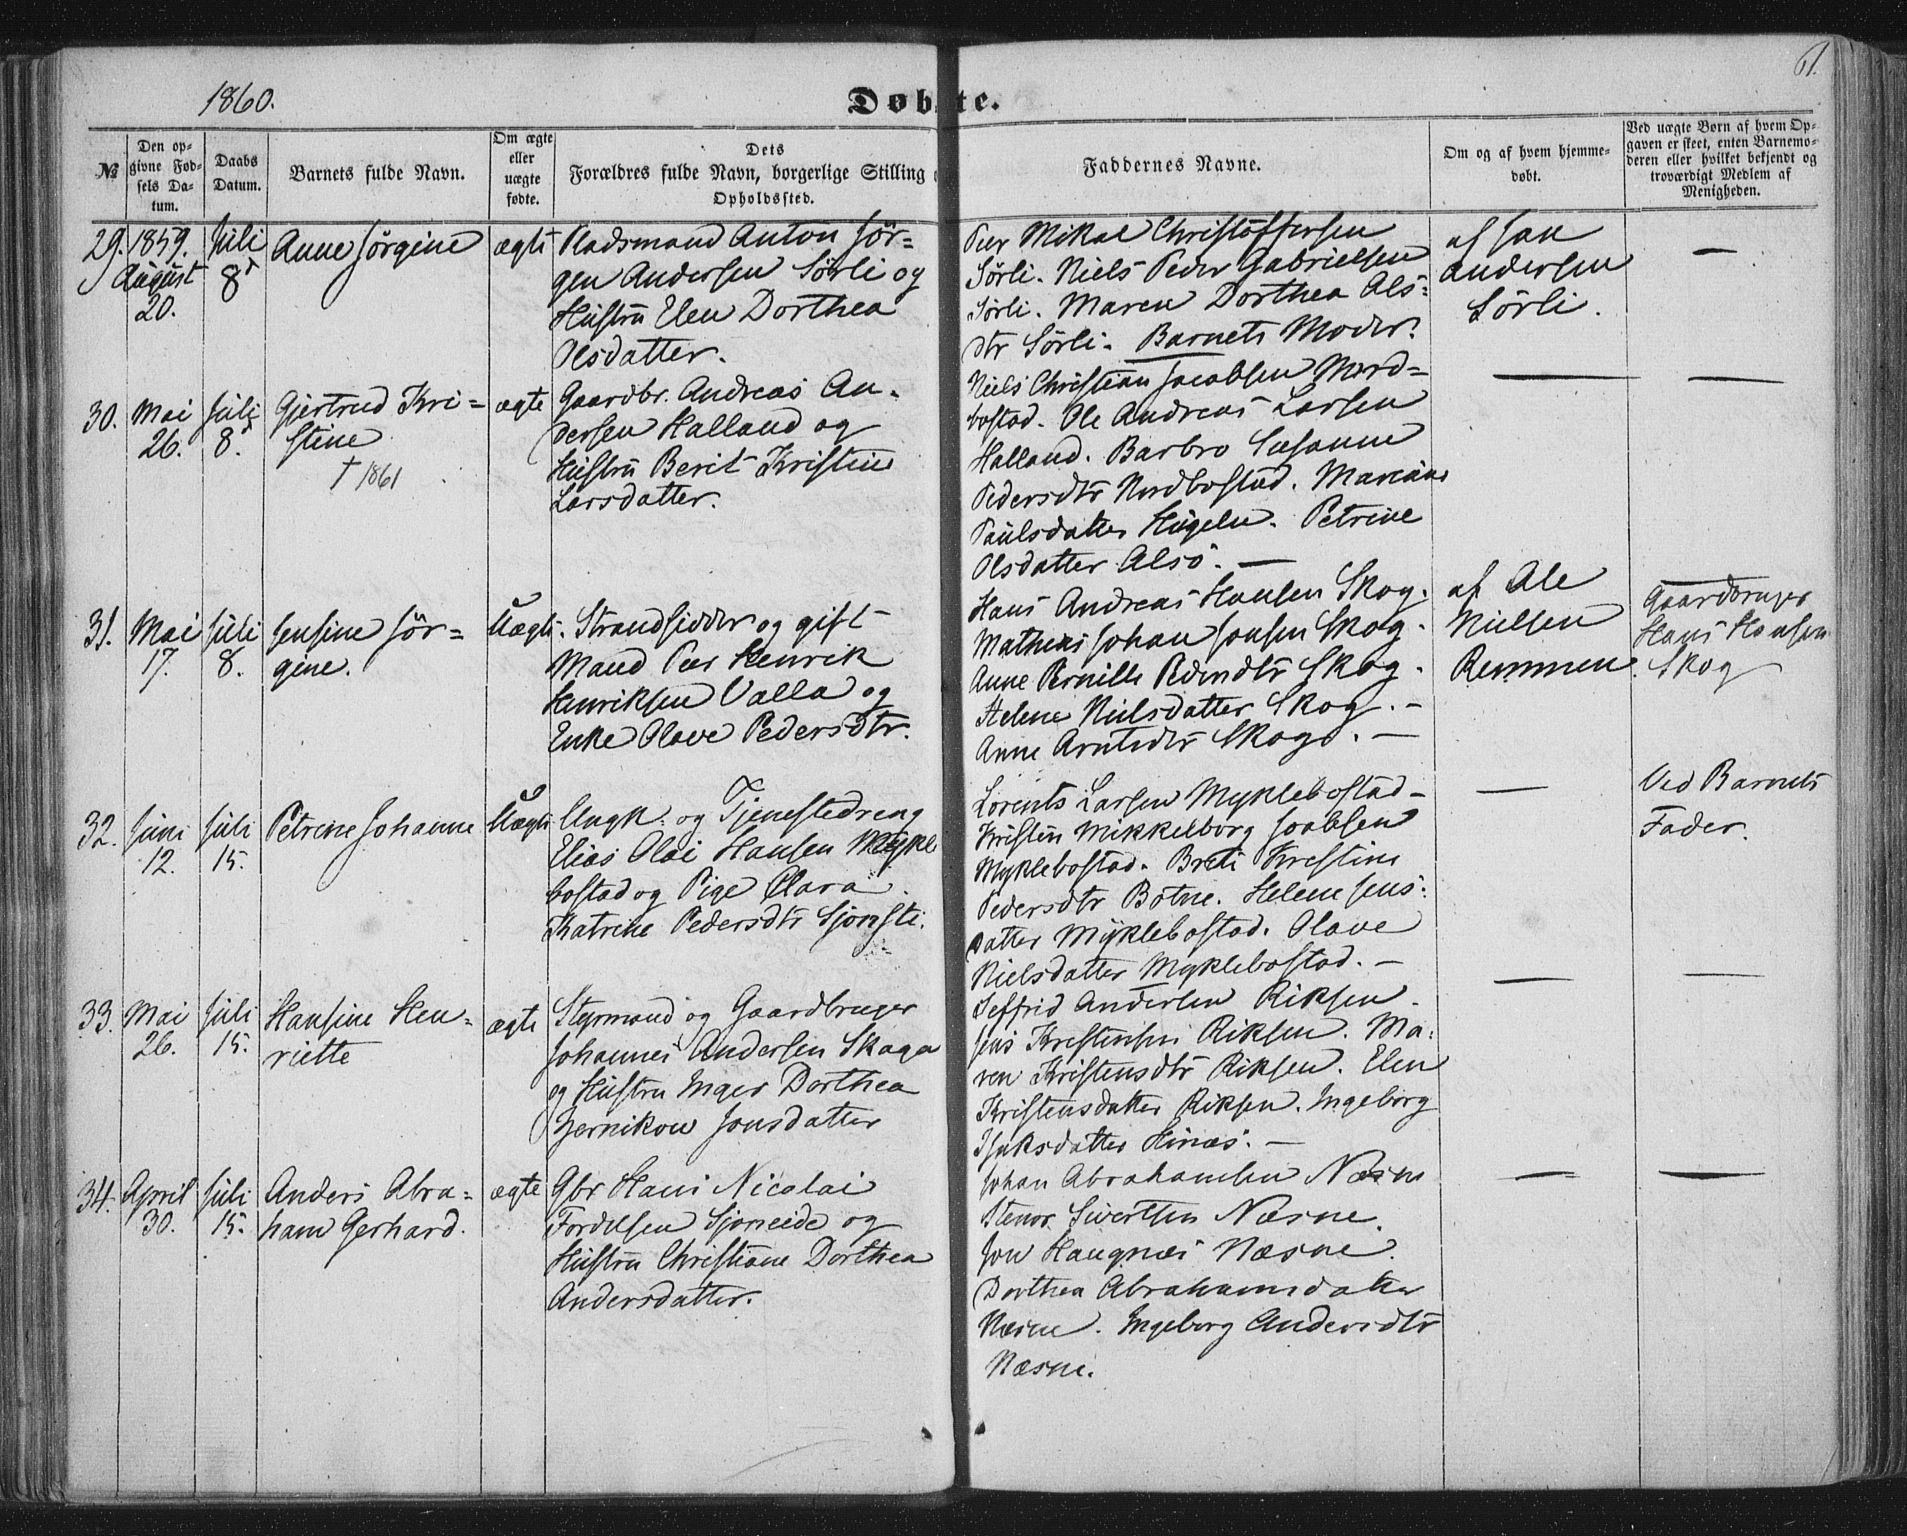 1860.
Døbte.
61.
№
Den op-
givne Fød-
sels Da-
tum.
Daabs
Datum.
Barnets fulde Navn.
Om ægte
eller
uægte
fødte.
Dets
Forældres fulde Navn, borgerlige Stilling
Opholdssted.
Faddernes Navne.
Om og af hvem hjemme-
døbt.
Ved uægte Børn af hvem Op-
gaven er skeet, enten Barnemo-
deren eller hvilket bekjendt og
troværdigt Medlem af
Menigheden.
29.
1859.
August
20.
Juli
8
Anne Jørgine
ægte
Pladsmand Anton Jør-
gen Andersen Sörli og
Hustru Elen Dorthea
Olsdatter.
Peer Mikal Christoffersen
Sörli. Niels Peder Gabrielsen
Sörli. Maren Dorthea Ols-
dtr Sörli. Barnets Moder.
af Jan
Andersen
Sörli.
—
30.
Mai
26.
Juli
8.
Gjertrud Kri-
stine
† 1861
ægte
Gaardbr. Andreas An-
dersen Halland og
Hustru Berit Kristine
Larsdatter.
Niels Christian Jacobsen Nord-
bostad. Ole Andreas Larsen
Halland. Barbro Susanne
Pedersdtr Nordbostad. Mariane
Paulsdatter Hugeln. Petrine
Olsdatter Alsö. —
—
—
31.
Mai
17.
Juli
8.
Jensine Jör-
gine.
Uægte
Strandsidder og gift
Mand Peer Henrik
Henriksen Valla og
Enke Olave Pedersdtr.
Hans Andreas Hansen Skog.
Mathias Johan Jonsen Skog.
Anne Pernille Pedersdtr Skog.
Helene Nielsdatter Skog. -
Anne Arntsdtr Skog. —
af Ole
Nielsen
Remmen.
Gaardbruger
Hans Hansen
Skog
32.
Juni
12.
Juli
15.
Petrine Johanne
Uægte
Ungk. og Tjenestedreng
Elias Olai Hansen Mykle
bostad og Pige Clara
Katrine Pedersdtr Sjonsti.
Lorents Larsen Myklebostad -
Kristen Mikkelborg Joabsen
Myklebostad. Breti Krestine
Pedersdtr Botne. Helene Jens-
datter Myklebostad. Olave
Nielsdatter Myklebostad. -
—
Ved Barnets
Fader.
33.
Mai
26.
Juli
15.
Hansine Hen-
riette
ægte
Styrmand og Gaardbruger
Johannes Andersen Skaga
og Hustru Inger Dorthea
Zernikow Jonsdatter
Seffrid Andersen Riksen.
Jens Kristensen Riksen. Ma-
ren Kristensdtr Riksen. Elen
Kristensdatter Riksen. Ingeborg
Isaksdatter Hinæs. —
—
—
34.
April
30.
Juli
15.
Anders Abra-
ham Gerhard.
ægte
Gbr Hans Nicolai
Fordelsen Sjoneide og
Hustru Christiane Dorthea
Andersdatter.
Johan Abrahamsen Næsne
Stenor Sivertsen Næsne.
Jon Haugnæs Næsne.
Dorthea Abrahamsdatter
Næsne. Ingeborg Andersdtr
Næsne.
—
—